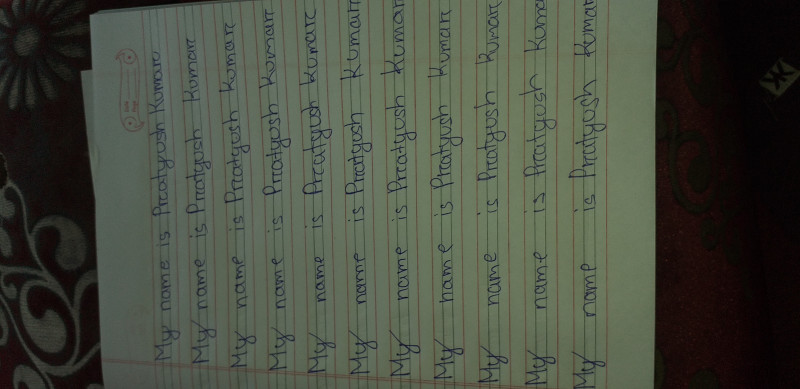 My name is Pratyush Kumar
My name is Pratyush Kumar
My name is Pratyush Kumar
My name is Pratyush Kumar
My name is Pratyush Kumar
My name is Pratyush Kumar
My name is Pratyush Kumar
My name is Pratyush Kumar
My name is Pratyush Kumar
My name is Pratyush Kumar
My name is Pratyush Kumar